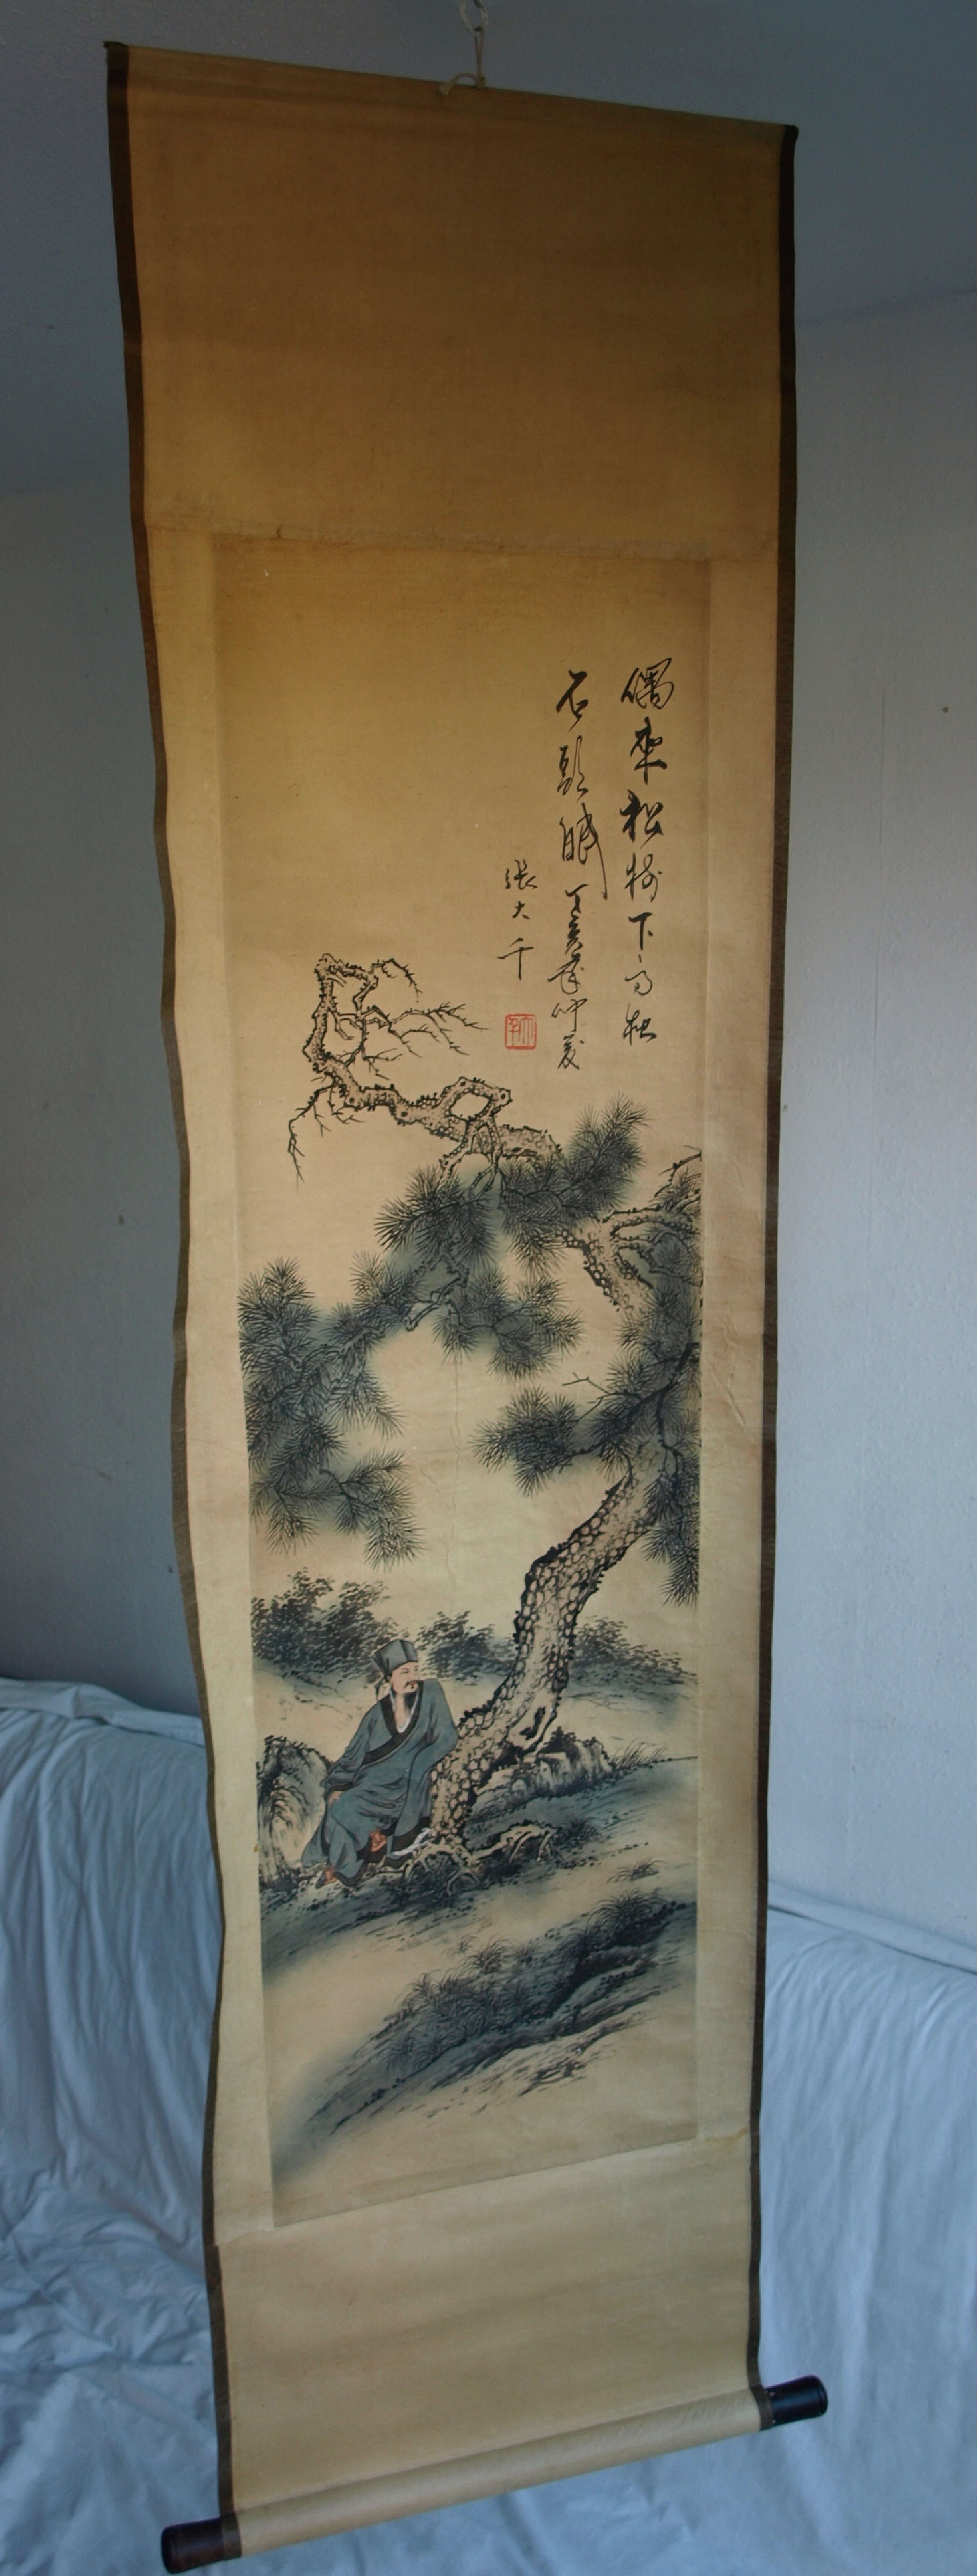 偶來松樹下高枕
石頭眠丁亥歲仲夏
張大千
大千